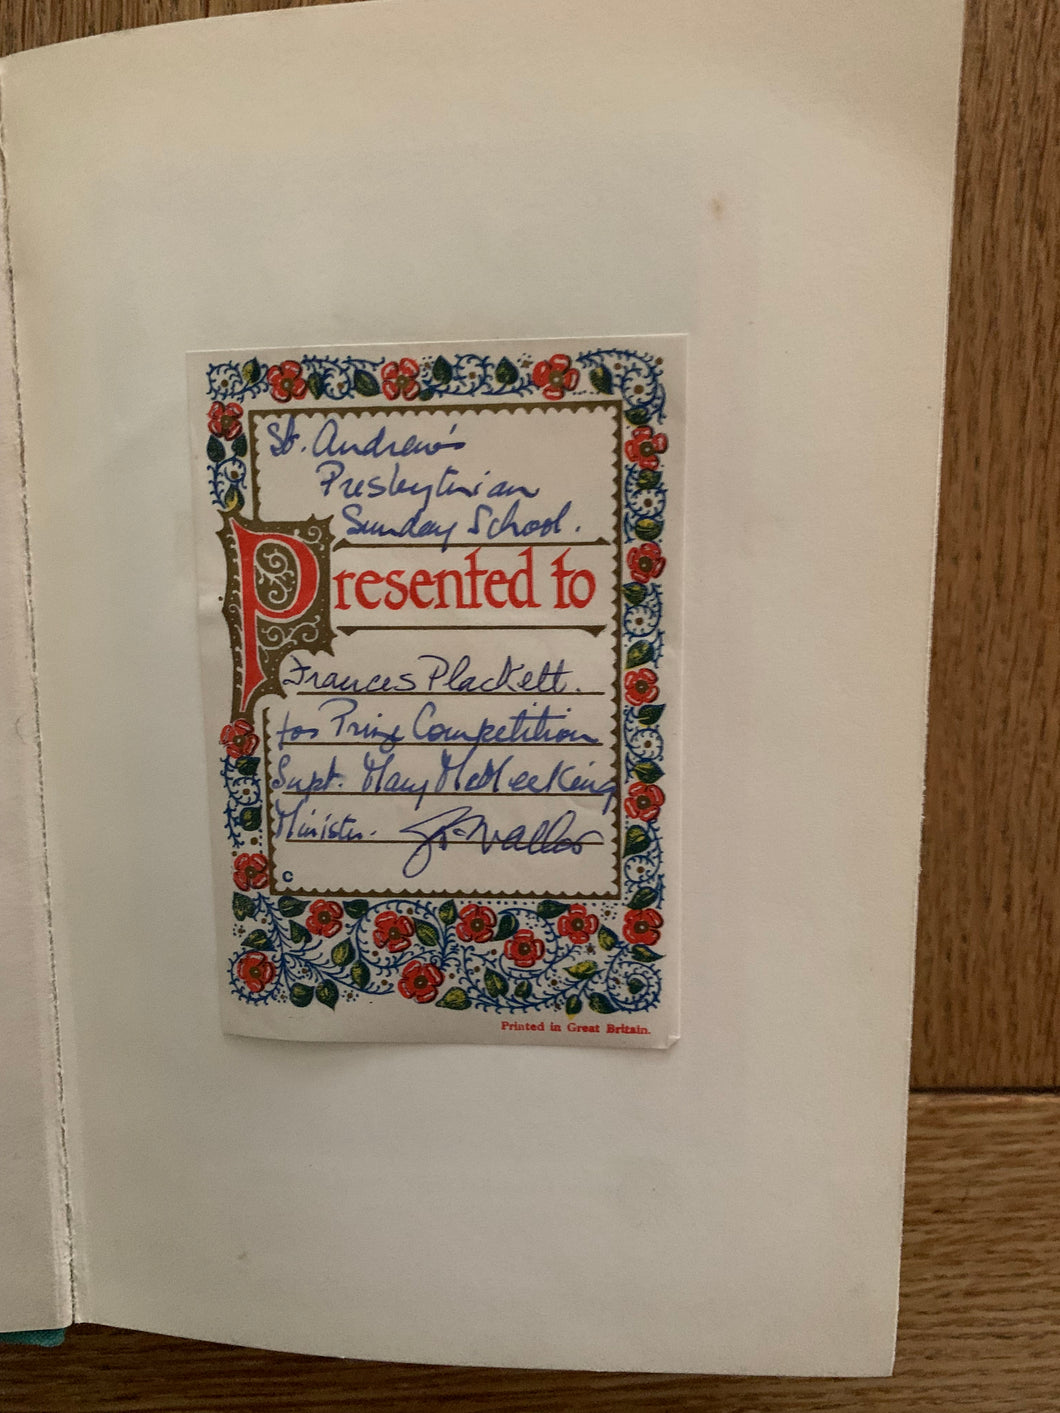 St. Andrew's
Presbyterian
Sunday School.
Presented to
Frances Plackett.
for Prize Competition
Supt. Mary McMeeKing
Minister.
c
Printed in Great Britain.